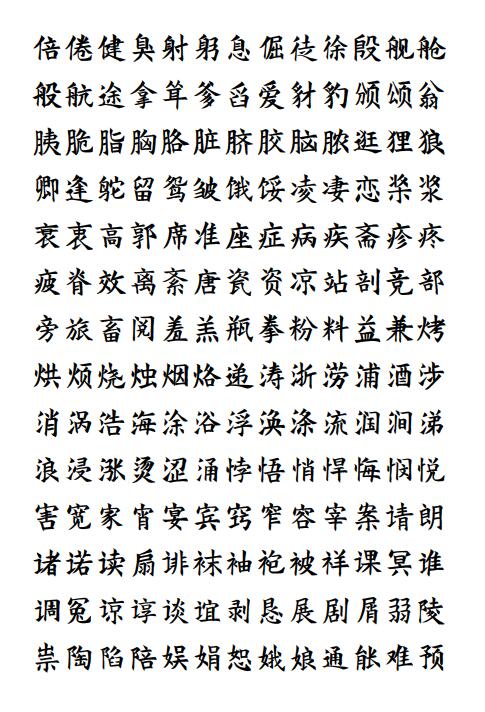 倍倦健臭射躬息倔徒徐殷舰舱
般航途拿耸爹舀爱豺豹颁颂翁
胰脆脂胸胳脏脐胶脑脓逛狸狼
卿逢鸵留鸳皱饿馁凌凄恋桨浆
衰衷高郭席准座症病疾斋疹疼
疲脊效离紊唐瓷资凉站剖竞部
旁旅畜阅羞羔瓶拳粉料益兼烤
烘烦烧烛烟烙递涛浙涝浦酒涉
消涡浩海涂浴浮涣涤流润涧涕
浪浸涨烫涩涌悖悟悄悍悔悯悦
害宽家宵宴宾窍窄容宰案请朗
诸诺读扇诽袜袖袍被祥课冥谁
调冤谅谆谈谊剥恳展剧屑弱陵
祟陶陷陪娱娟恕娥娘通能难预